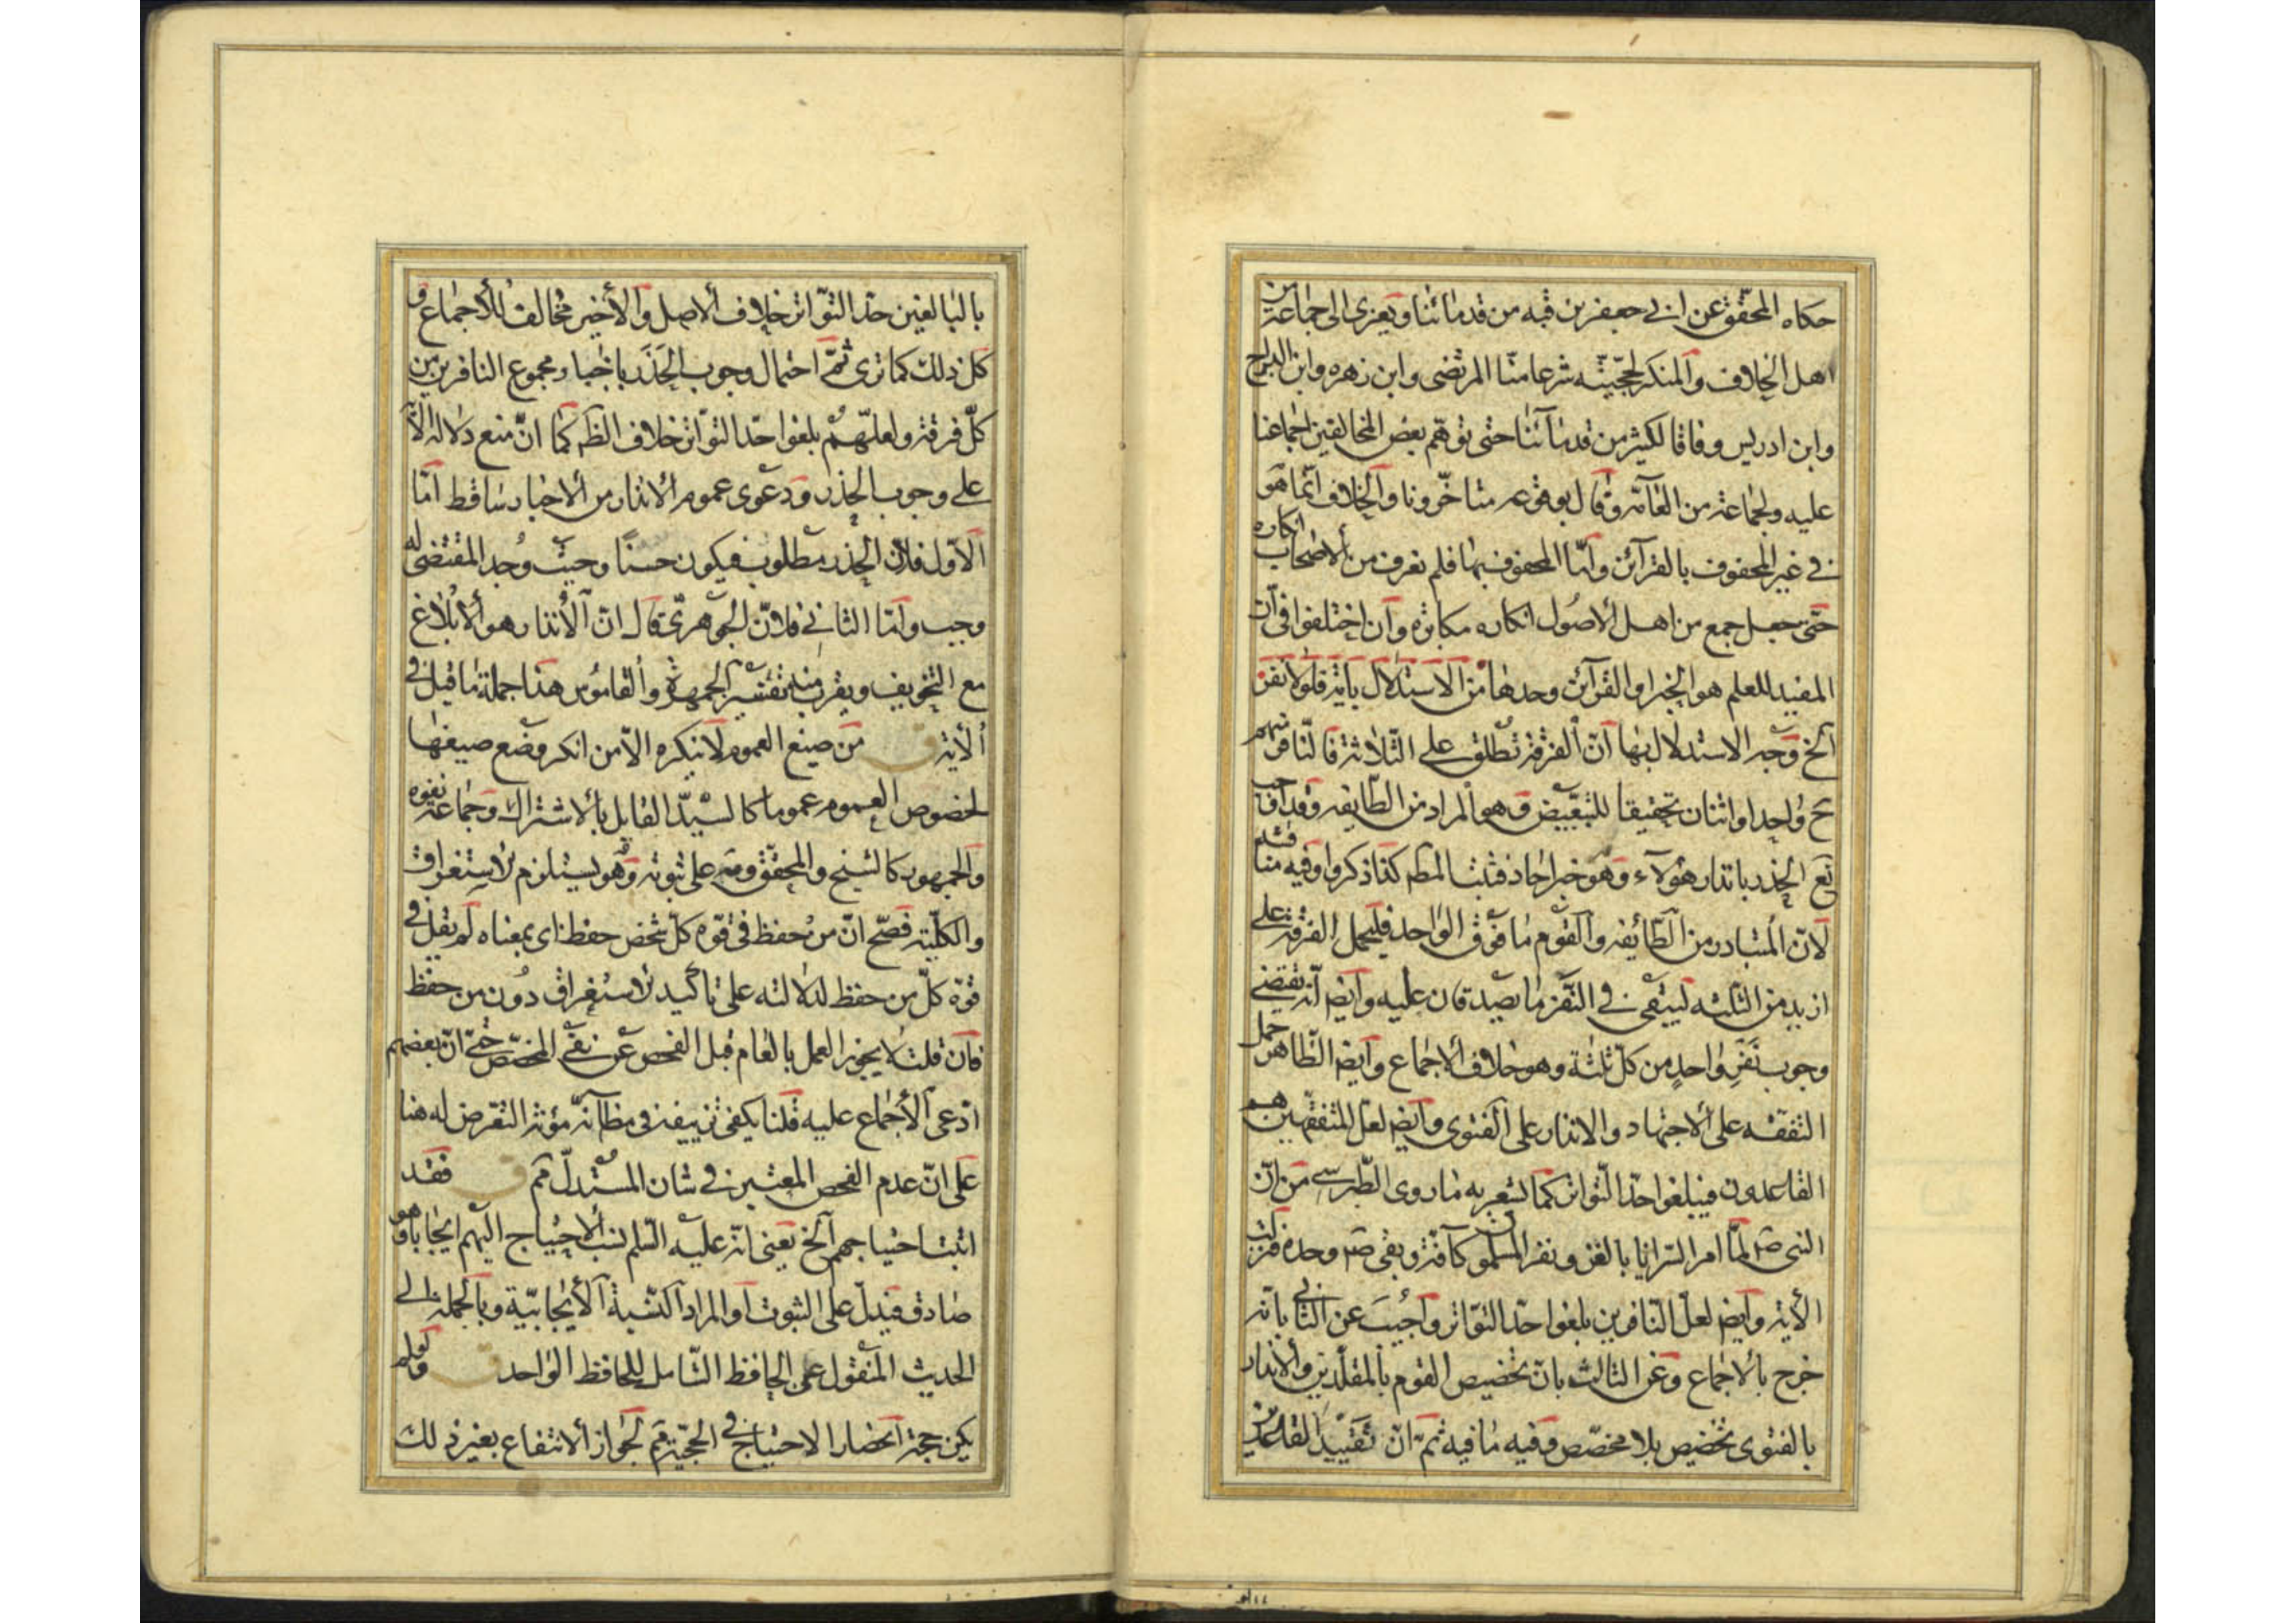 حكاه المحقق عن ابى جعفر بن قبه من قدمائنا ويعزى الى جماعة من
اهل الخلاف والمنكر لحجيته شرعا منا المرتضى وابن زهره وابن البراج
وابن ادريس وفاقا لكثير من قدمآئنا حتى توهم بعض المخالفين اجماعنا
عليه ولجماعة من العآمه وقال بوقوعه متأخرونا والخلاف انما هو
فى غير المحفوف بالقرآئن وامّا المحفوف بها فلم نعرف من الاصحاب انكاره
حتى جعل جمع من اهل الاصول انكاره مكابره وان اختلفوا فى ان
المفيد للعلم هو الخبر او القرآئن وحدها من الاستدلال باية فلولا نفر
الخ وجه الاستدلال بها ان الفرقة تطلق على الثلاثة فالنافر منهم
ح واحد او اثنان تحقيقا للتبعيض وهو المراد من الطايفه وقد اوجب
تع الحذر بانذار هؤلاء وهو خبر احاد فثبت المط كذا ذكروا وفيه مناقشه
لانّ المتبادر من الطائفه والقوم ما فوق الواحد فليحمل الفرقة على
ازيد من الثلثه ليبقى فى النفر ما يصدقان عليه وايض انّه يقتضى
وجوب نفر واحد من كل ثلثة وهو خلاف الاجماع وايض الظاهر حمل
التفقه على الاجتهاد والانذار على الفتوى وايض لعل المتفقهين هم
القاعدون فيبلغوا حدّ التواتر كما يشعر به ما روى الطبرسى من انّ
النبى ص لمّا امر السّرايا بالغزو نفر المسلمون كآفة وبقى ص وحده فنزلت
الأية وايض لعل النّافرين بلغوا حدّ التوّاتر واجُيبَ عن الثانى بانه
خرج بالاجماع وعن الثالث بان تخصيص القوم بالمقلدين والانذار
بالفتوى تخصيص بلا مخصّص وفيه ما فيه ثمّ انّ تقييد القاعدين
بالبالغين حدّ التوّاتر خلاف الاصل والأخير مخالف للاجماع و
كل ذلك كما ترى ثمّ احتمال وجوب الحَذَر باخبار مجموع النافرين من
كلّ فرقة ولعلّهم بلغوا حدّ التواتر خلاف الظ كما انّ منع دلالة الأ
على وجوب الحذر ودعوى عموم الانذار من الاخبار ساقط امّا
الاوّل فلان الحذر مطلوب فيكون حسنًا وحيث وُجد المقتضى له
وجب وامّا الثانى فلانّ الجوهرىّ قال انّ الأنذار هو الابلاغ
مع التخويف ويقرب منه تفسير الجمهرة والقاموس هذا جملة ما قيل فى
الأية ق من صيغ العموم لا ينكره الاّ من انكر وضع صيغها
لخصوص العموم عموما كالسيّد القايل بالاشتراك وجماعة نفوه
والجمهور كالشيخ والمحقق ومه على ثبوته وهو يستلزم الاستغراق
والكليّة فصّح انّ من حفظ فى قوّه كلّ شخص حفظ اى بمعناه لم يقل فى
قوة كلّ من حفظ لدلالته على تأكيد الاستغراق دون من حفظ
فان قلت لا يجوز العمل بالعام قبل الفحص عن نفى المخصّص حتى انّ بعضهم
ادّعى الأجماع عليه قلنا يكفى تزييفه فى مظآنّه مؤنة التعرض له هنا
على انّ عدم الفحص المعتبر فى شان المستدلّ مم ق فقد
اثبت احتياجهم الخ يعنى انّه عليه السّلم نسب الاحتياج اليهم ايجابا وهو
صادق فيدلّ على الثبوت او المراد النسبة الأيجابيّة وبالجملة الى
الحديث المنقول عمى الحافظ الشّامل للحافظ الواحد ق ولم
يكن حجة احضار الاحتياج فى الحجيّة مم لجواز الانتفاع بغير ذلك